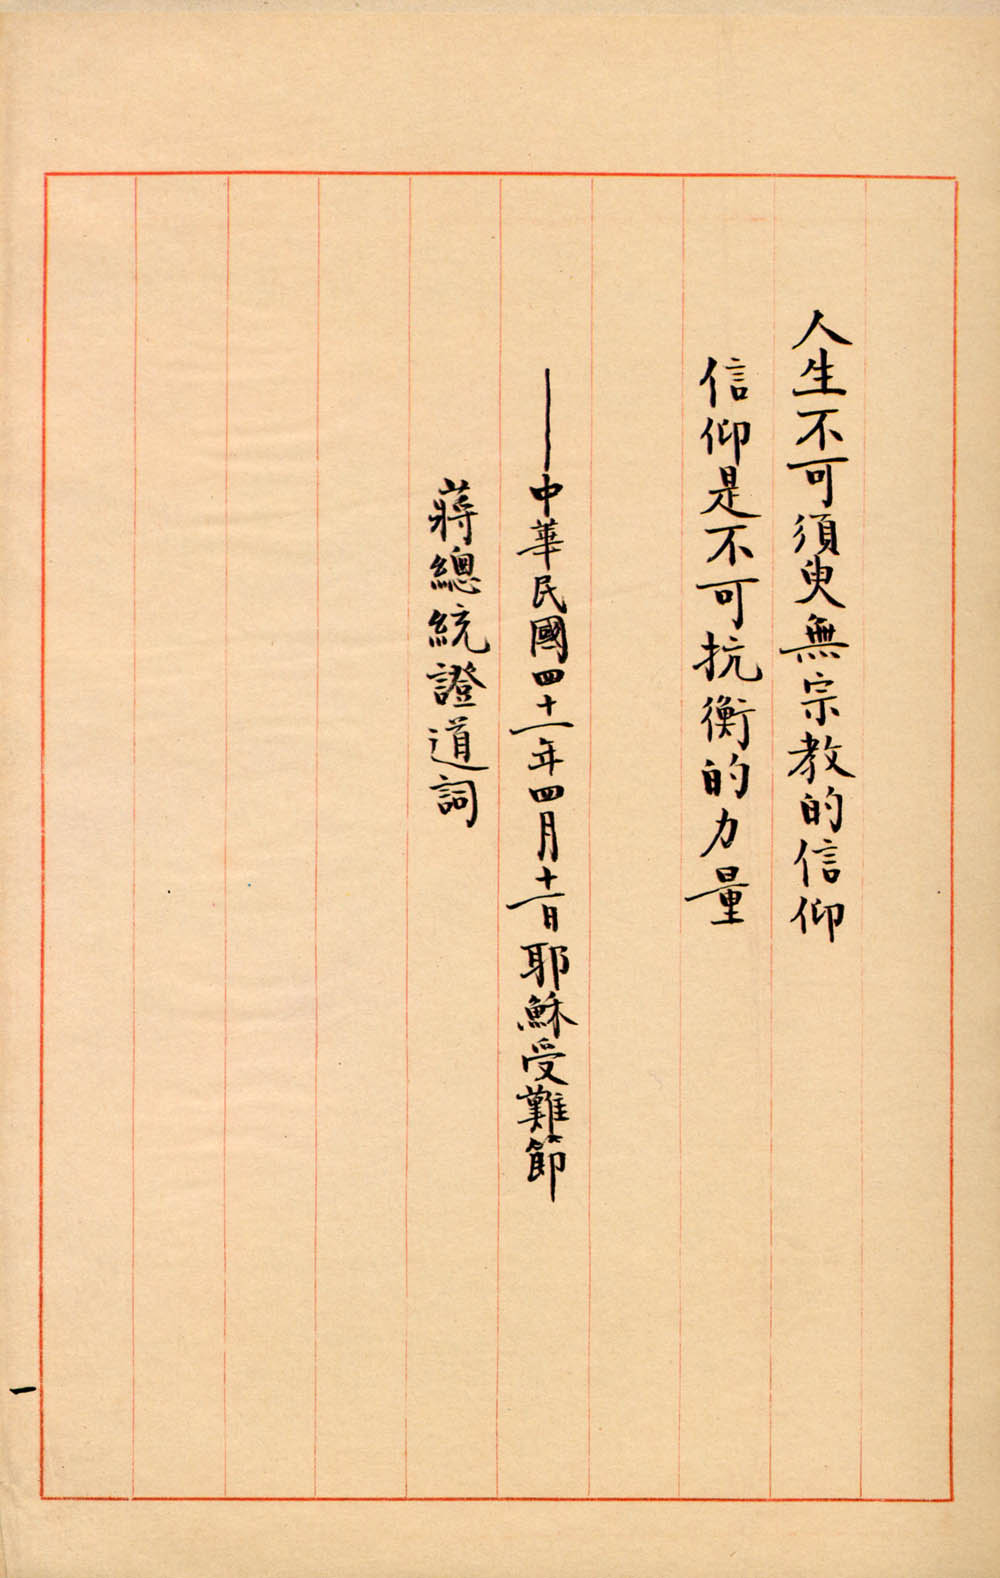 人生不可須臾無宗教的信仰
信仰是不可抗衡的力量
——中華民國四十一年四月十一日耶穌受難節
蔣總統證道詞
一